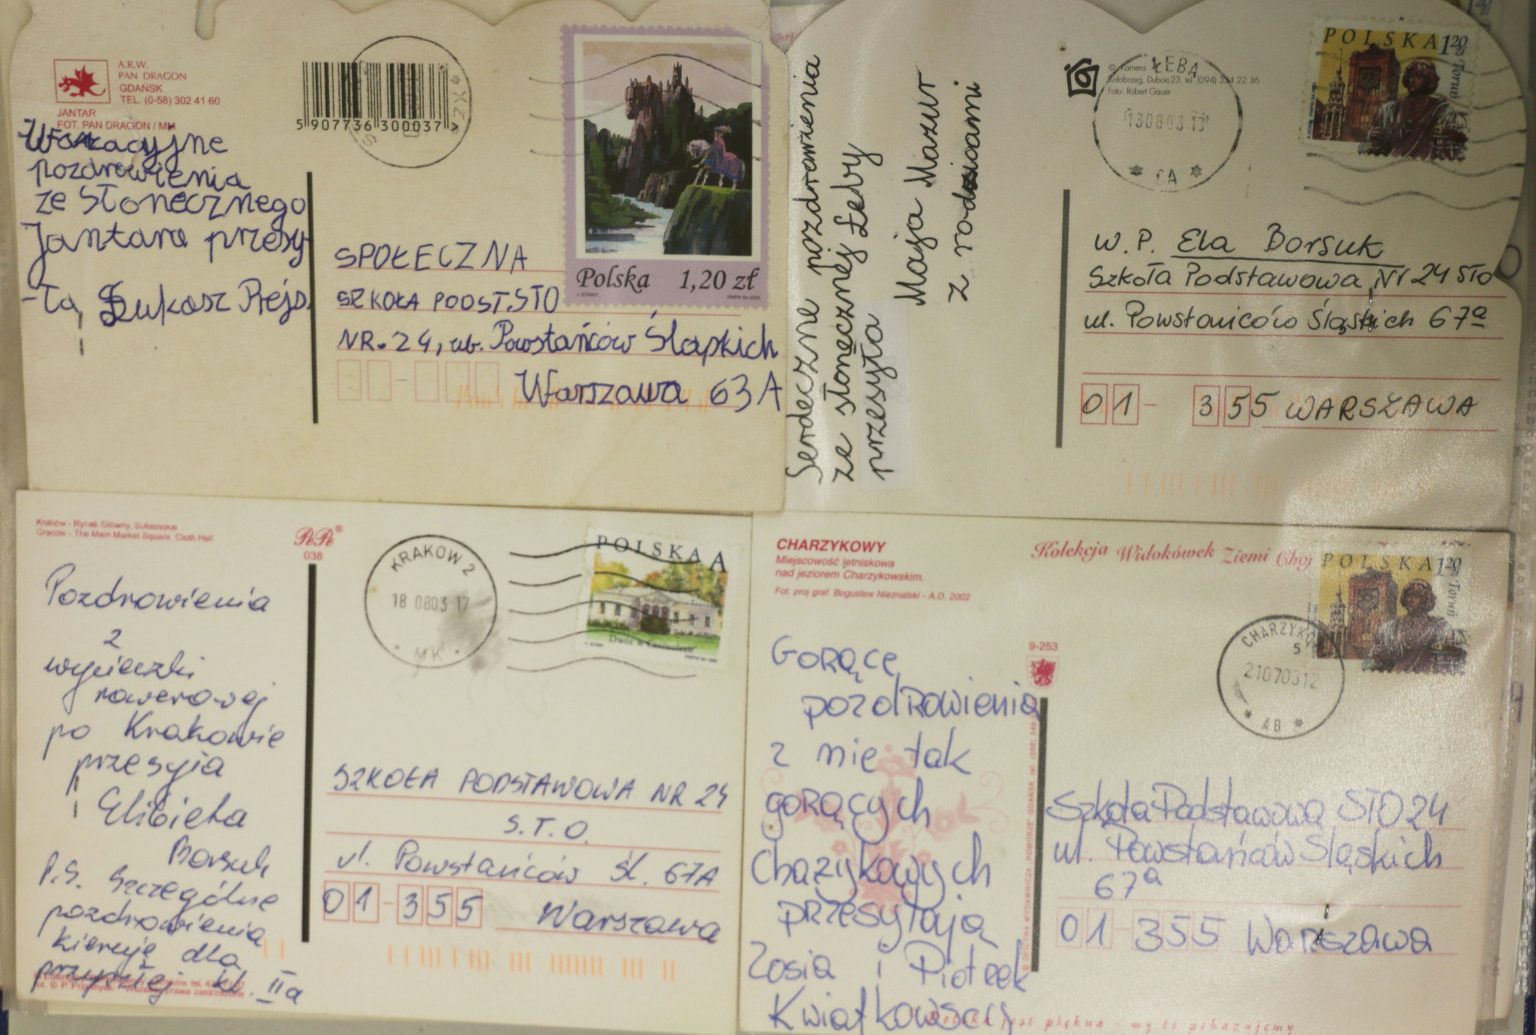 A.R.W.
PAN DRAGON
GDAŃSK
TEL. (0-58) 302 41 60
JANTAR
FOT. PAN DRAGON / MM
5 907736 300037
Wakacyjne
pozdrowienia
ze Słonecznego
Jantara przesy-
-ła Łukasz Rejs.
Polska 1,20 zł
SPOŁECZNA
SZKOŁA PODST. STO
NR. 24, ul. Powstańców Śląskich
Warszawa 63A
Serdeczne pozdrowienia
ze słonecznej Łeby
przesyła
Maja Mazur
z rodzicami
Kołobrzeg, Dubois 23, tel. (094) 354 22 36
Foto: Robert Gauer
ŁEBA
130803 13
CA
POLSKA 1,20 zł
Toruń
W.P. Ela Borsuk
Szkoła Podstawowa Nr 24 STO
ul. Powstańców Śląskich 67a
01-355 WARSZAWA
Kraków - Rynek Główny, Sukiennice
Cracow - The Main Market Square, Cloth Hall
038
KRAKÓW 2
18 0803 17
MK
POLSKA A
Pozdrowienia
z
wycieczki
rowerowej
po Krakowie
przesyła
Elżbieta
Borsuk
P.S. Szczególne
pozdrowienia
kieruję dla
przyszłej kl. IIa
SZKOŁA PODSTAWOWA NR 24
S.T.O.
ul. Powstańców Śl. 67A
01-355 Warszawa
CHARZYKOWY
Miejscowość letniskowa
nad jeziorem Charzykowskim.
Fot. proj graf. Bogusław Nieznalski - A.D. 2002
Kolekcja Widokówek Ziemi Choj
9-253
CHARZYKO
210703 12
AB
POLSKA 1,20 zł
Toruń
Gorące
pozdrowienia
z nie tak
gorących
Charzykowych
przesyłają
Zosia i Piotrek
Kwiatkowscy
Szkoła Podstawowa STO 24
ul. Powstańców Śląskich
67a
01 355 Warszawa
jest piękna - my to pokazujemy